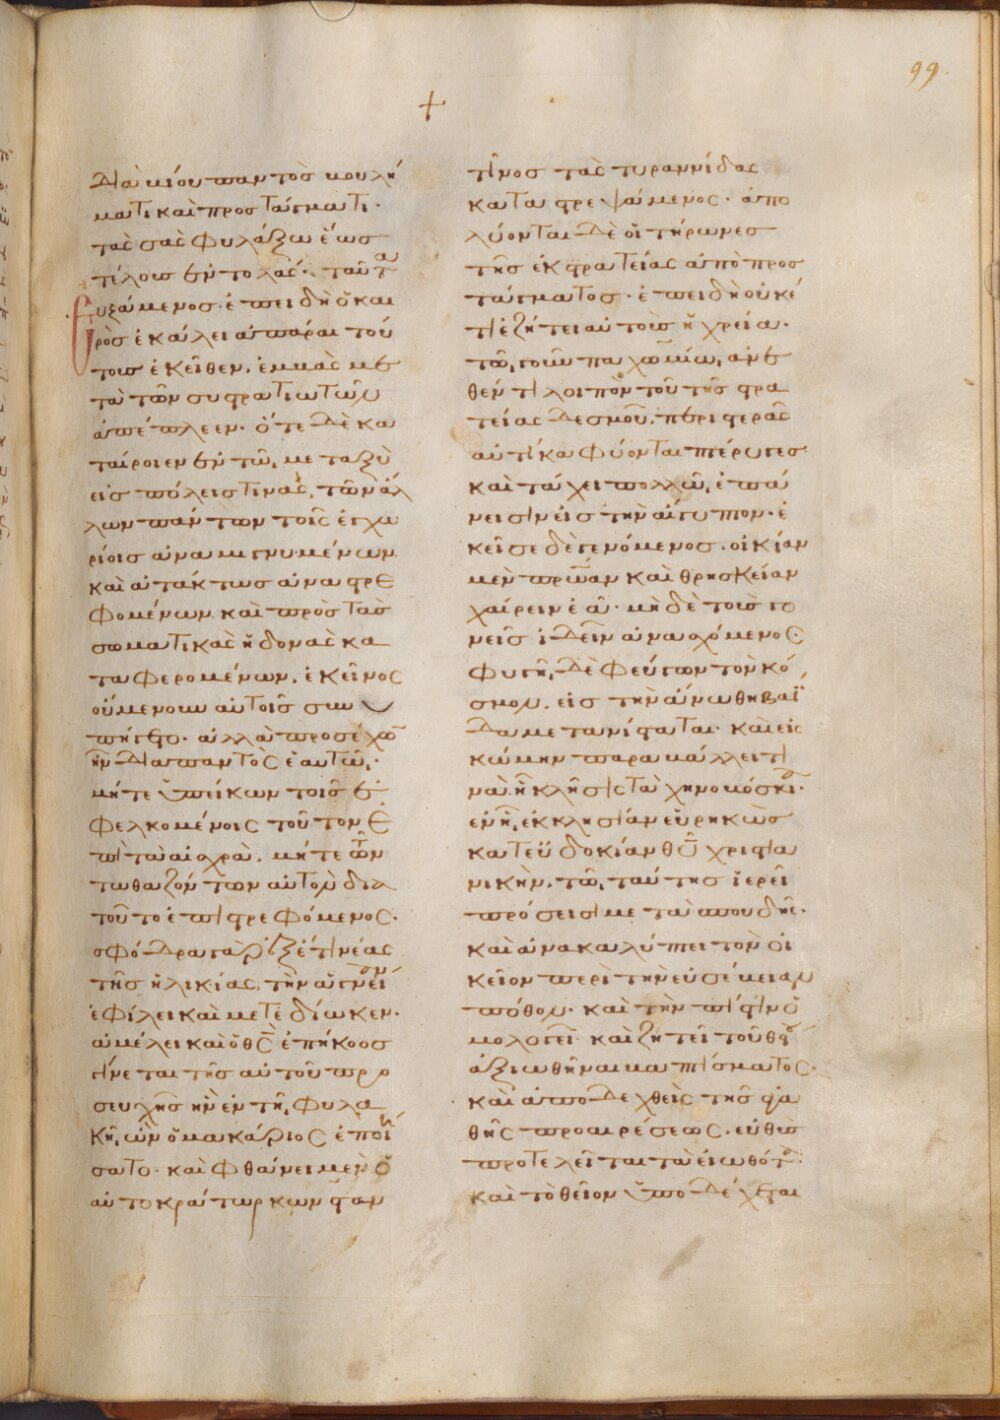 διὰ βίου παντὸσ βουλή
ματι καὶ προστάγματι·
τὰσ σὰσ φυλάξω ἕωσ
τέλουσ ἐντολάς· ταῦτα
εὐξάμενοσ· ἐπειδὴ ὁ και
ρὸσ ἐκάλει ἀπᾶραι τού
τουσ ἐκεῖθεν. ἐμβὰσ με
τὰ τῶν συστρατιωτῶν
ἀπέπλεεν· ὅτε δὲ κα
ταίροιεν ἐν τῶ, μεταξὺ
εἰσ πόλεισ τινὰς, τῶν ἄλ
λων πάντων τοῖς ἐγχω
ρίοισ ἀναμιγνυμένων
καὶ ἀτάκτωσ ἀναστρε
φομένων καὶ πρὸσ τὰσ
σωματικὰς ἡδονὰς κα
ταφερομένων, ἐκεῖνος
οὐμενουν αὐτοῖσ συν
υπήγετο· ἀλλὰ προσέχων
ἦν διαπαντὸς ἑαυτῶι·
μήτε ὑπείκων τοῖσ ἐ
φελκομένοις τοῦτον ἐ
πὶ τὰ αἰσχρὰ. μήτε τῶν
τωθαζόντων αὐτὸν διὰ
τοῦτο ἐπιστρεφόμενος·
σφόδρα γὰρ ἐξέτι νέας
τῆσ ἡλικίας, τὴν ἁγνείαν
ἐφίλει καὶ μετεδίωκεν·
ἀμέλει καὶ ὁ θς ἐπήκοοσ
γίνεται τῆσ αὐτοῦ προ
σευχῆσ ἣν ἐν τῆι φυλα
κῆι ὢν ὁ μακάριος ἐποιή
σατο· καὶ φθάνει μὲν ὁ
αὐτοκράτωρ κωνσταν
τῖνοσ τὰσ τυραννίδας
καταστρεψάμενος· ἀπο
λύονται δὲ οἱ τήρωνεσ
τῆσ ἐκστρατείας ἀπὸ προσ
τάγματοσ· ἐπειδὴ οὐκέ
τι ἐζήτει αὐτοὺσ ἡ χρεία·
τῶ, γοῦν παχωμίω, ἀνε
θέντι λοιπὸν τοῦ τῆσ στρα
τείας δεσμοῦ, περιστερᾶς
αὐτίκα φύονται πτέρυγεσ
καὶ τάχει πολλῶ, ἐπά
νεισιν εἰσ τὴν αἴγυπτον· ἐ
κεῖσε δὲ γενόμενοσ. οἰκίαν
μὲν πρώαν καὶ θρησκείαν
χαίρειν ἐᾶ· μηδὲ τοὺσ γο
νεῖσ ἰδεῖν ἀνασχόμενος
φυγῆι δὲ φεύγων τὸν κό
σμον, εἰσ τὴν ἄνω θηβαΐ
δα μετανίσταται· καὶ εἰς
κώμην παραβάλλει τι
νὰ ἧ κλῆσισ τὰ χηνοβόσκια·
ἐν ἧ, ἐκκλησίαν εὑρηκὼσ
κατ εὐδοκίαν θῦ χριστια
νικὴν, τῶ, ταύτησ ἱερεῖ
πρόσεισι μετὰ σπουδῆς·
καὶ ἀνακαλύπτει τὸν οἰ
κεῖον περὶ τὴν εὐσέβειαν
πόθον· καὶ τὴν πίστιν ὁ
μολογεῖ· καὶ ζητεῖ τοῦ θείου
ἀξιωθῆναι βαπτίσματος·
καὶ ἀποδεχθεὶς τῆσ ἀγα
θῆς προαιρέσεως. εὐθὺσ
προτελεῖται τὰ εἰωθότα·
καὶ τὸ θεῖον ὑποδέχεται
99